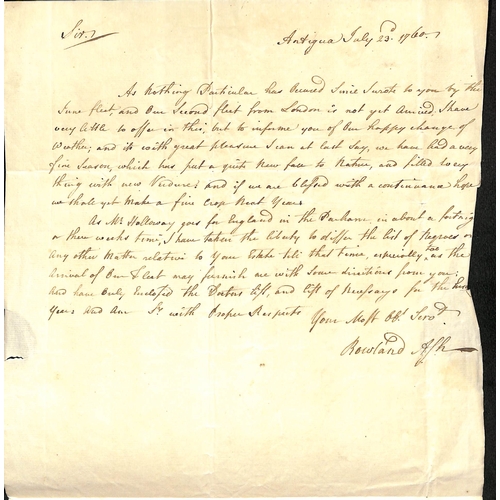 Sir,
Antigua July 23d. 1760.
As Nothing Particular has Ocured Since I wrote to you by the
June fleet, and Our Second fleet from London is not yet Arrived I have
very little to offer in this, but to informe you of Our happy change of
Weather; and its with great pleasure I can at last Say, we have had a very
fine Season, which has put a quite New face to Nature, and filled every
thing with new Verdure; and if we are blessed with a continuance hope
we shall yet Make a fine Crop Next Year.
As Mr Hallaway goes for England in the Danhame, in about a fortnig
or three weeks time, I have taken the liberty to differ the list of Negroes or
Any other Matter relative to Your Estate till that time, especially too, as the
Arrival of Our Fleet may furnish me with Some directions from you;
And have Only Enclosed the Doctors list, and list of Necessarys for the
Year, and Am Sr. with Proper Respects
Your Most Obt. Servt.
Rowland Ash